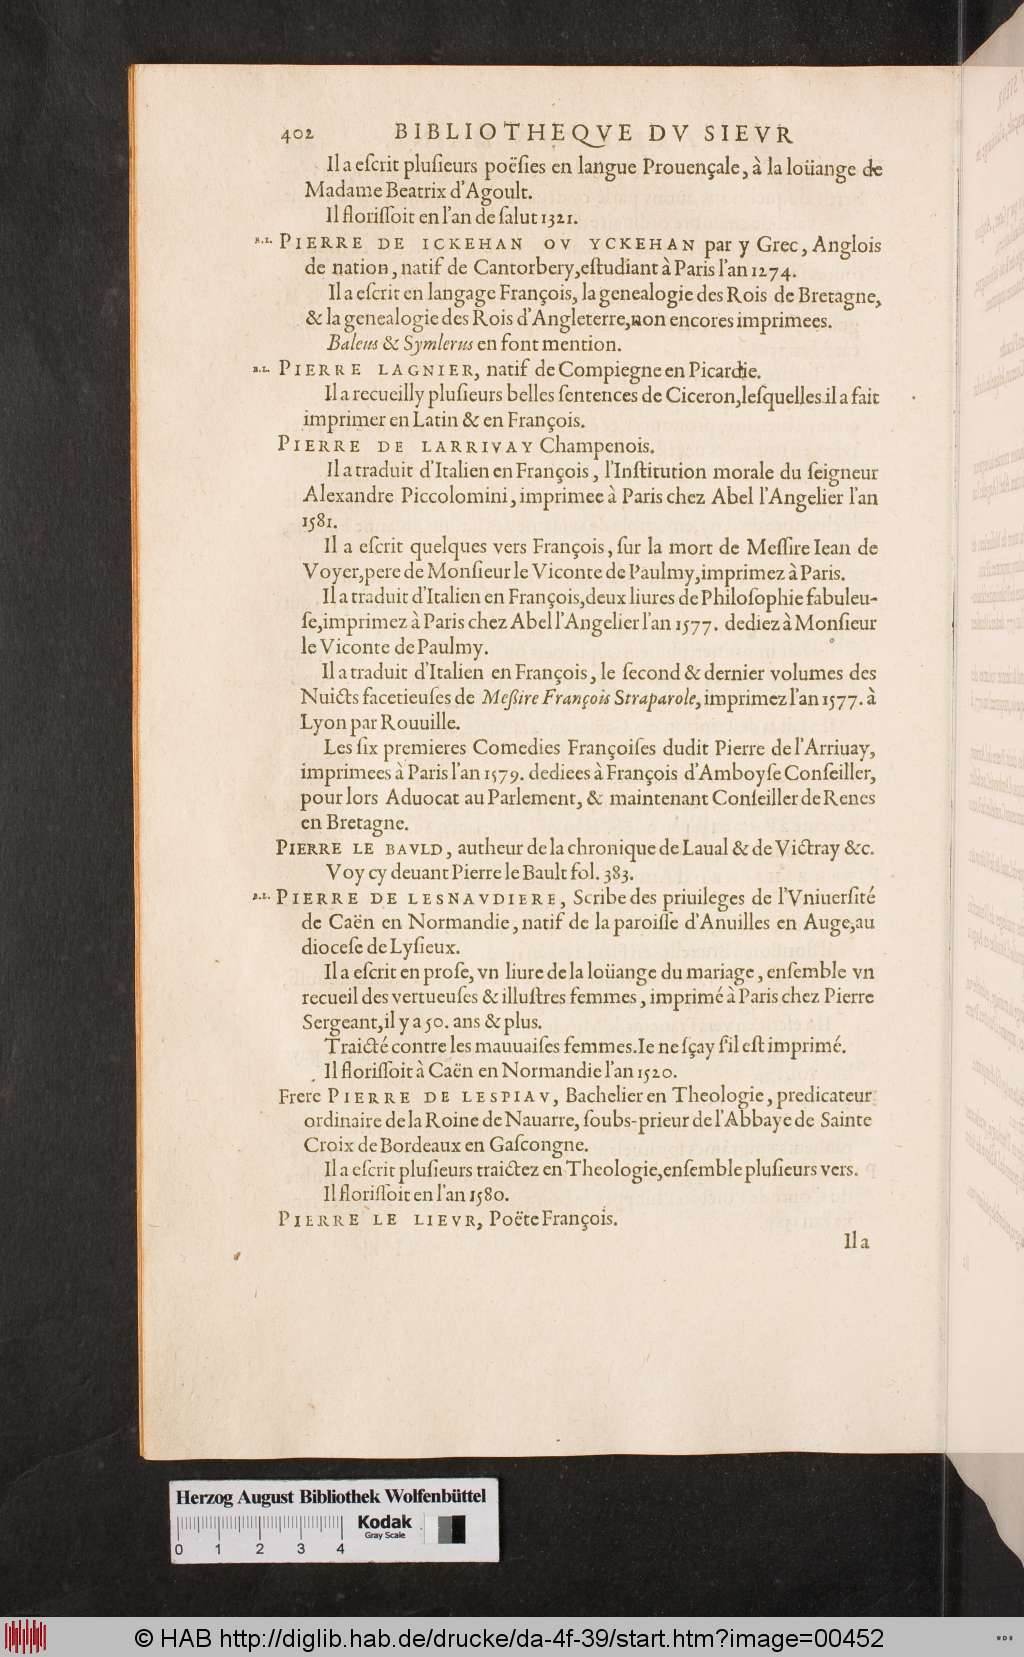 402 BIBLIOTHEQVE DV SIEVR
Il a eſcrit pluſieurs poëſies en langue Prouençale, à la loüange de
Madame Beatrix d'Agoult.
Il floriſſoit en l'an de ſalut 1321.
B.L. PIERRE DE ICKEHAN OV YCKEHAN par y Grec, Anglois
de nation, natif de Cantorbery, eſtudiant à Paris l'an 1274.
Il a eſcrit en langage François, la genealogie des Rois de Bretagne,
& la genealogie des Rois d'Angleterre, non encores imprimees.
Baleus & Symlerus en font mention.
B.L. PIERRE LAGNIER, natif de Compiegne en Picardie.
Il a recueilly pluſieurs belles ſentences de Ciceron, leſquelles il a fait
imprimer en Latin & en François.
PIERRE DE LARRIVAY Champenois.
Il a traduit d'Italien en François, l'Inſtitution morale du ſeigneur
Alexandre Piccolomini, imprimee à Paris chez Abel l'Angelier l'an
1581.
Il a eſcrit quelques vers François, ſur la mort de Meſſire Iean de
Voyer, pere de Monſieur le Viconte de Paulmy, imprimez à Paris.
Il a traduit d'Italien en François, deux liures de Philoſophie fabuleu-
ſe, imprimez à Paris chez Abel l'Angelier l'an 1577. dediez à Monſieur
le Viconte de Paulmy.
Il a traduit d'Italien en François, le ſecond & dernier volumes des
Nuicts facetieuſes de Meſſire François Straparole, imprimez l'an 1577. à
Lyon par Rouuille.
Les ſix premieres Comedies Françoiſes dudit Pierre de l'Arriuay,
imprimees à Paris l'an 1579. dediees à François d'Amboyſe Conſeiller,
pour lors Aduocat au Parlement, & maintenant Conſeiller de Renes
en Bretagne.
PIERRE LE BAVLD, autheur de la chronique de Laual & de Victray &c.
Voy cy deuant Pierre le Bault fol. 383.
B.L. PIERRE DE LESNAVDIERE, Scribe des priuileges de l'Vniuerſité
de Caën en Normandie, natif de la paroiſſe d'Anuilles en Auge, au
dioceſe de Lyſieux.
Il a eſcrit en proſe, vn liure de la loüange du mariage, enſemble vn
recueil des vertueuſes & illuſtres femmes, imprimé à Paris chez Pierre
Sergeant, il y a 50. ans & plus.
Traicté contre les mauuaiſes femmes. Ie ne ſçay ſ'il eſt imprimé.
Il floriſſoit à Caën en Normandie l'an 1520.
Frere PIERRE DE LESPIAV, Bachelier en Theologie, predicateur
ordinaire de la Roine de Nauarre, ſoubs-prieur de l'Abbaye de Sainte
Croix de Bordeaux en Gaſcongne.
Il a eſcrit pluſieurs traictez en Theologie, enſemble pluſieurs vers.
Il floriſſoit en l'an 1580.
PIERRE LE LIEVR, Poëte François.
Il a
Herzog August Bibliothek Wolfenbüttel
Kodak
Gray Scale
0 1 2 3 4
© HAB http://diglib.hab.de/drucke/da-4f-39/start.htm?image=00452